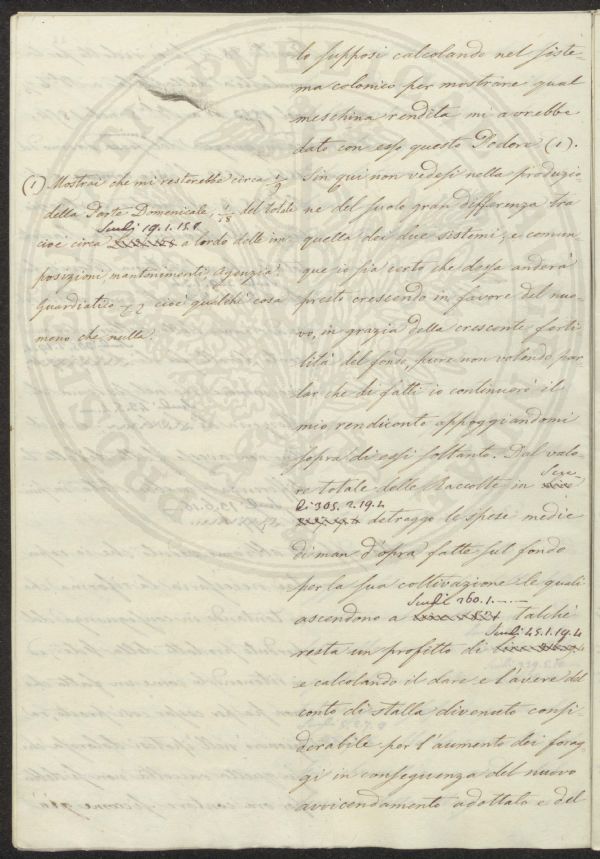 lo supposi calcolando nel siste-
ma colonico per mostrare qual
meschina rendita mi avrebbe
dato con esso questo Podere (1).
Sin qui non vedesi nella produzio-
ne del suolo gran differenza tra
quella dei due sistemi, e comun-
que io sia certo che dessa anderà
presto crescendo in favore del nuo-
vo, in grazia della crescente ferti-
lità del fondo, pure non volendo par-
lar che di fatti io continuerò il
mio rendiconto appoggiandomi
sopra di essi soltanto. Dal valo-
re totale delle Raccolte in Scu-
di 305. 2. 19. 4
detraggo le spese medie
di man d'opra fatte sul fondo
per la sua coltivazione le quali
Scudi 260. 1. -
ascendono a talchè
Scudi 45. 1. 19. 4
resta un profitto di
e calcolando il dare e l'avere del
conto di stalla divenuto consi-
derabile per l'aumento dei forag-
gi in conseguenza del nuovo
avvicendamento adottato e del
(1) Mostrai che mi resterebbe circa 1/9
della Parte Domenicale, 1/18 del totale
Scudi 19. 1. 15. 8
cioè circa a lordo delle im-
posizioni mantenimenti, Agenzia
Guardiatico &c cioè qualche cosa
meno che nulla.